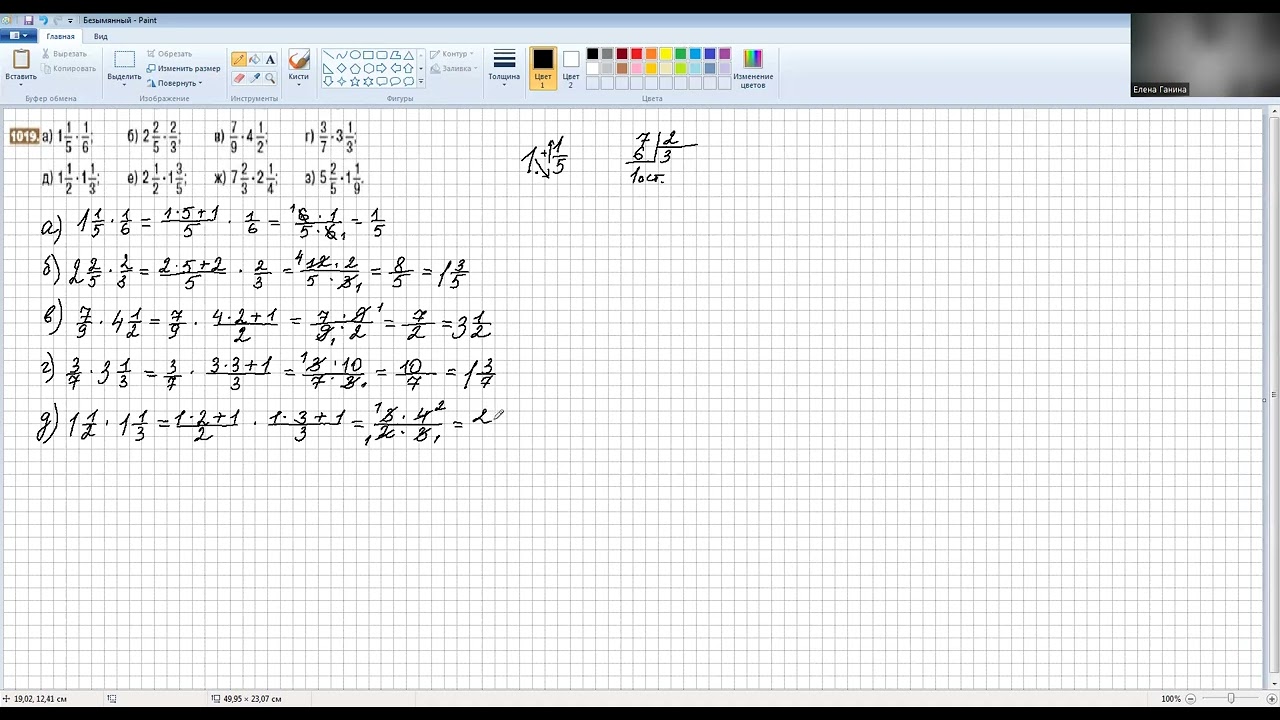 Безымянный - Paint
Главная Вид
Вставить
Вырезать
Копировать
Буфер обмена
Выделить
Обрезать
Изменить размер
Повернуть
Изображение
A
Инструменты
Кисти
Контур
Заливка
Фигуры
Толщина
Цвет 1
Цвет 2
Изменение цветов
Цвета
Елена Ганина
1019. а) 1 1/5 · 1/6; б) 2 2/5 · 2/3; в) 7/9 · 4 1/2; г) 3/7 · 3 1/3;
д) 1 1/2 · 1 1/3; е) 2 1/2 · 1 3/5; ж) 7 2/3 · 2 1/4; з) 5 2/5 · 1 1/9.
1 + 1/5
7 | 2
6 | 3
1 ост.
а) 1 1/5 · 1/6 = (1·5+1)/5 · 1/6 = (6·1)/(5·6) = 1/5
б) 2 2/5 · 2/3 = (2·5+2)/5 · 2/3 = (12·2)/(5·3) = 8/5 = 1 3/5
в) 7/9 · 4 1/2 = 7/9 · (4·2+1)/2 = (7·9)/(9·2) = 7/2 = 3 1/2
г) 3/7 · 3 1/3 = 3/7 · (3·3+1)/3 = (3·10)/(7·3) = 10/7 = 1 3/7
д) 1 1/2 · 1 1/3 = (1·2+1)/2 · (1·3+1)/3 = (3·4)/(2·3) = 2
19,02, 12,41 см
49,95 × 23,07 см
100%